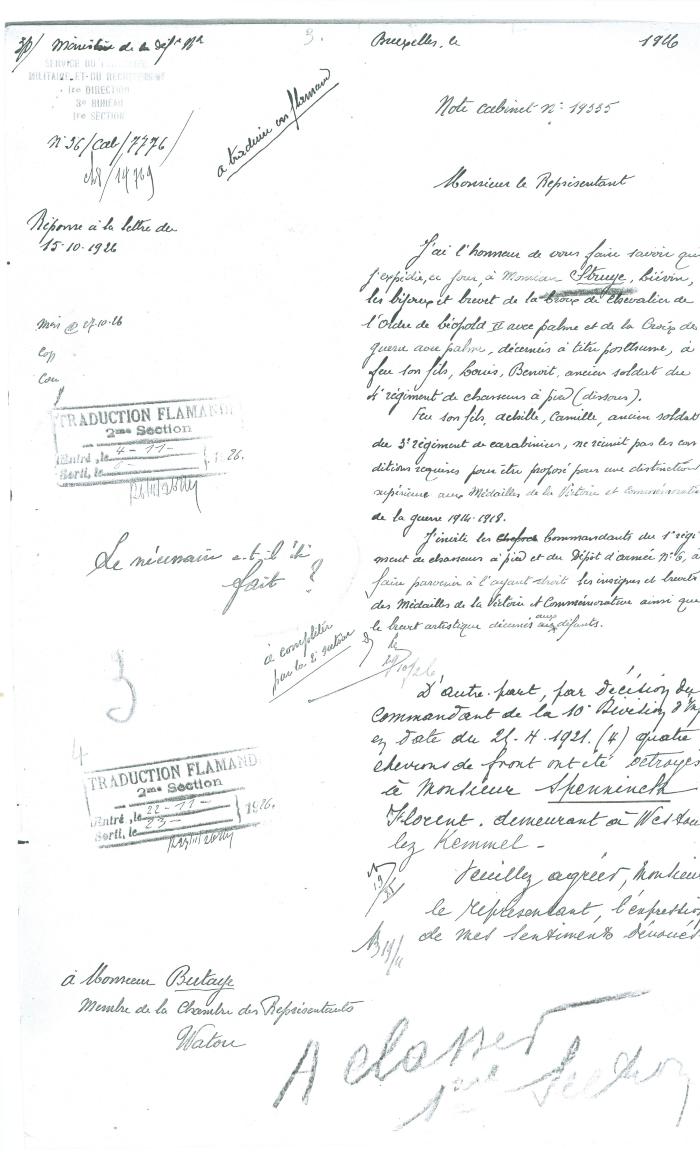 Ministère de la Défse Nle
SERVICE DU
MILITAIRE ET DU RECRUTEMENT
1re DIRECTION
3e BUREAU
1re SECTION
N° 36/Cab/7776/
14769
Réponse à la lettre du
15-10-1926
3.
a traduire en flamand
Bruxelles, le 1926
Note cabinet N° 19555
Monsieur le Représentant
J'ai l'honneur de vous faire savoir que
j'expédie, ce jour, à Monsieur Struye,
les bijoux et brevet de la croix de Chevalier de
l'Ordre de Léopold II avec palme et de la Croix de
guerre avec palme, décernés à titre posthume, à
feu son fils, Louis, Benoit, ancien soldat du
4e régiment de chasseurs à pied (dissous).
Feu son fils, Achille, Camille, ancien soldat
du 3e régiment de carabiniers, ne réunit pas les con
ditions requises pour être proposé pour une distinction
supérieure aux Médailles de la Victoire et Commémorative
de la guerre 1914-1918.
J'invite les Commandants du 1e régi
ment de chasseurs à pied et du Dépôt d'armée N° 6, à
faire parvenir à l'ayant droit les insignes et brevets
des Médailles de la Victoire et Commémorative ainsi que
le brevet artistique décernés aux défunts.
27-10-26
Cop
TRADUCTION FLAMANDE
2me Section
Entré, le 4-11-
Sorti, le } 1926.
Le nécessaire a-t-il été
fait ?
à compléter
par la 2e section
le
29/10/26
3
4
D'autre part, par décision du
Commandant de la 10e Division d'
en date du 21.4.1921. (4) quatre
chevrons de front ont été octroyés
à Monsieur Spenninck
Florent. demeurant à Westou
lez Kemmel -
Veuillez agréer, Monsieur
le représentant, l'expression
de mes sentiments dévoués
TRADUCTION FLAMANDE
2me Section
Entré, le 22-11-
Sorti, le 23- } 1926.
19/11
à Monsieur Butaye
Membre de la Chambre des Représentants
Watou
A classer
1ère Section